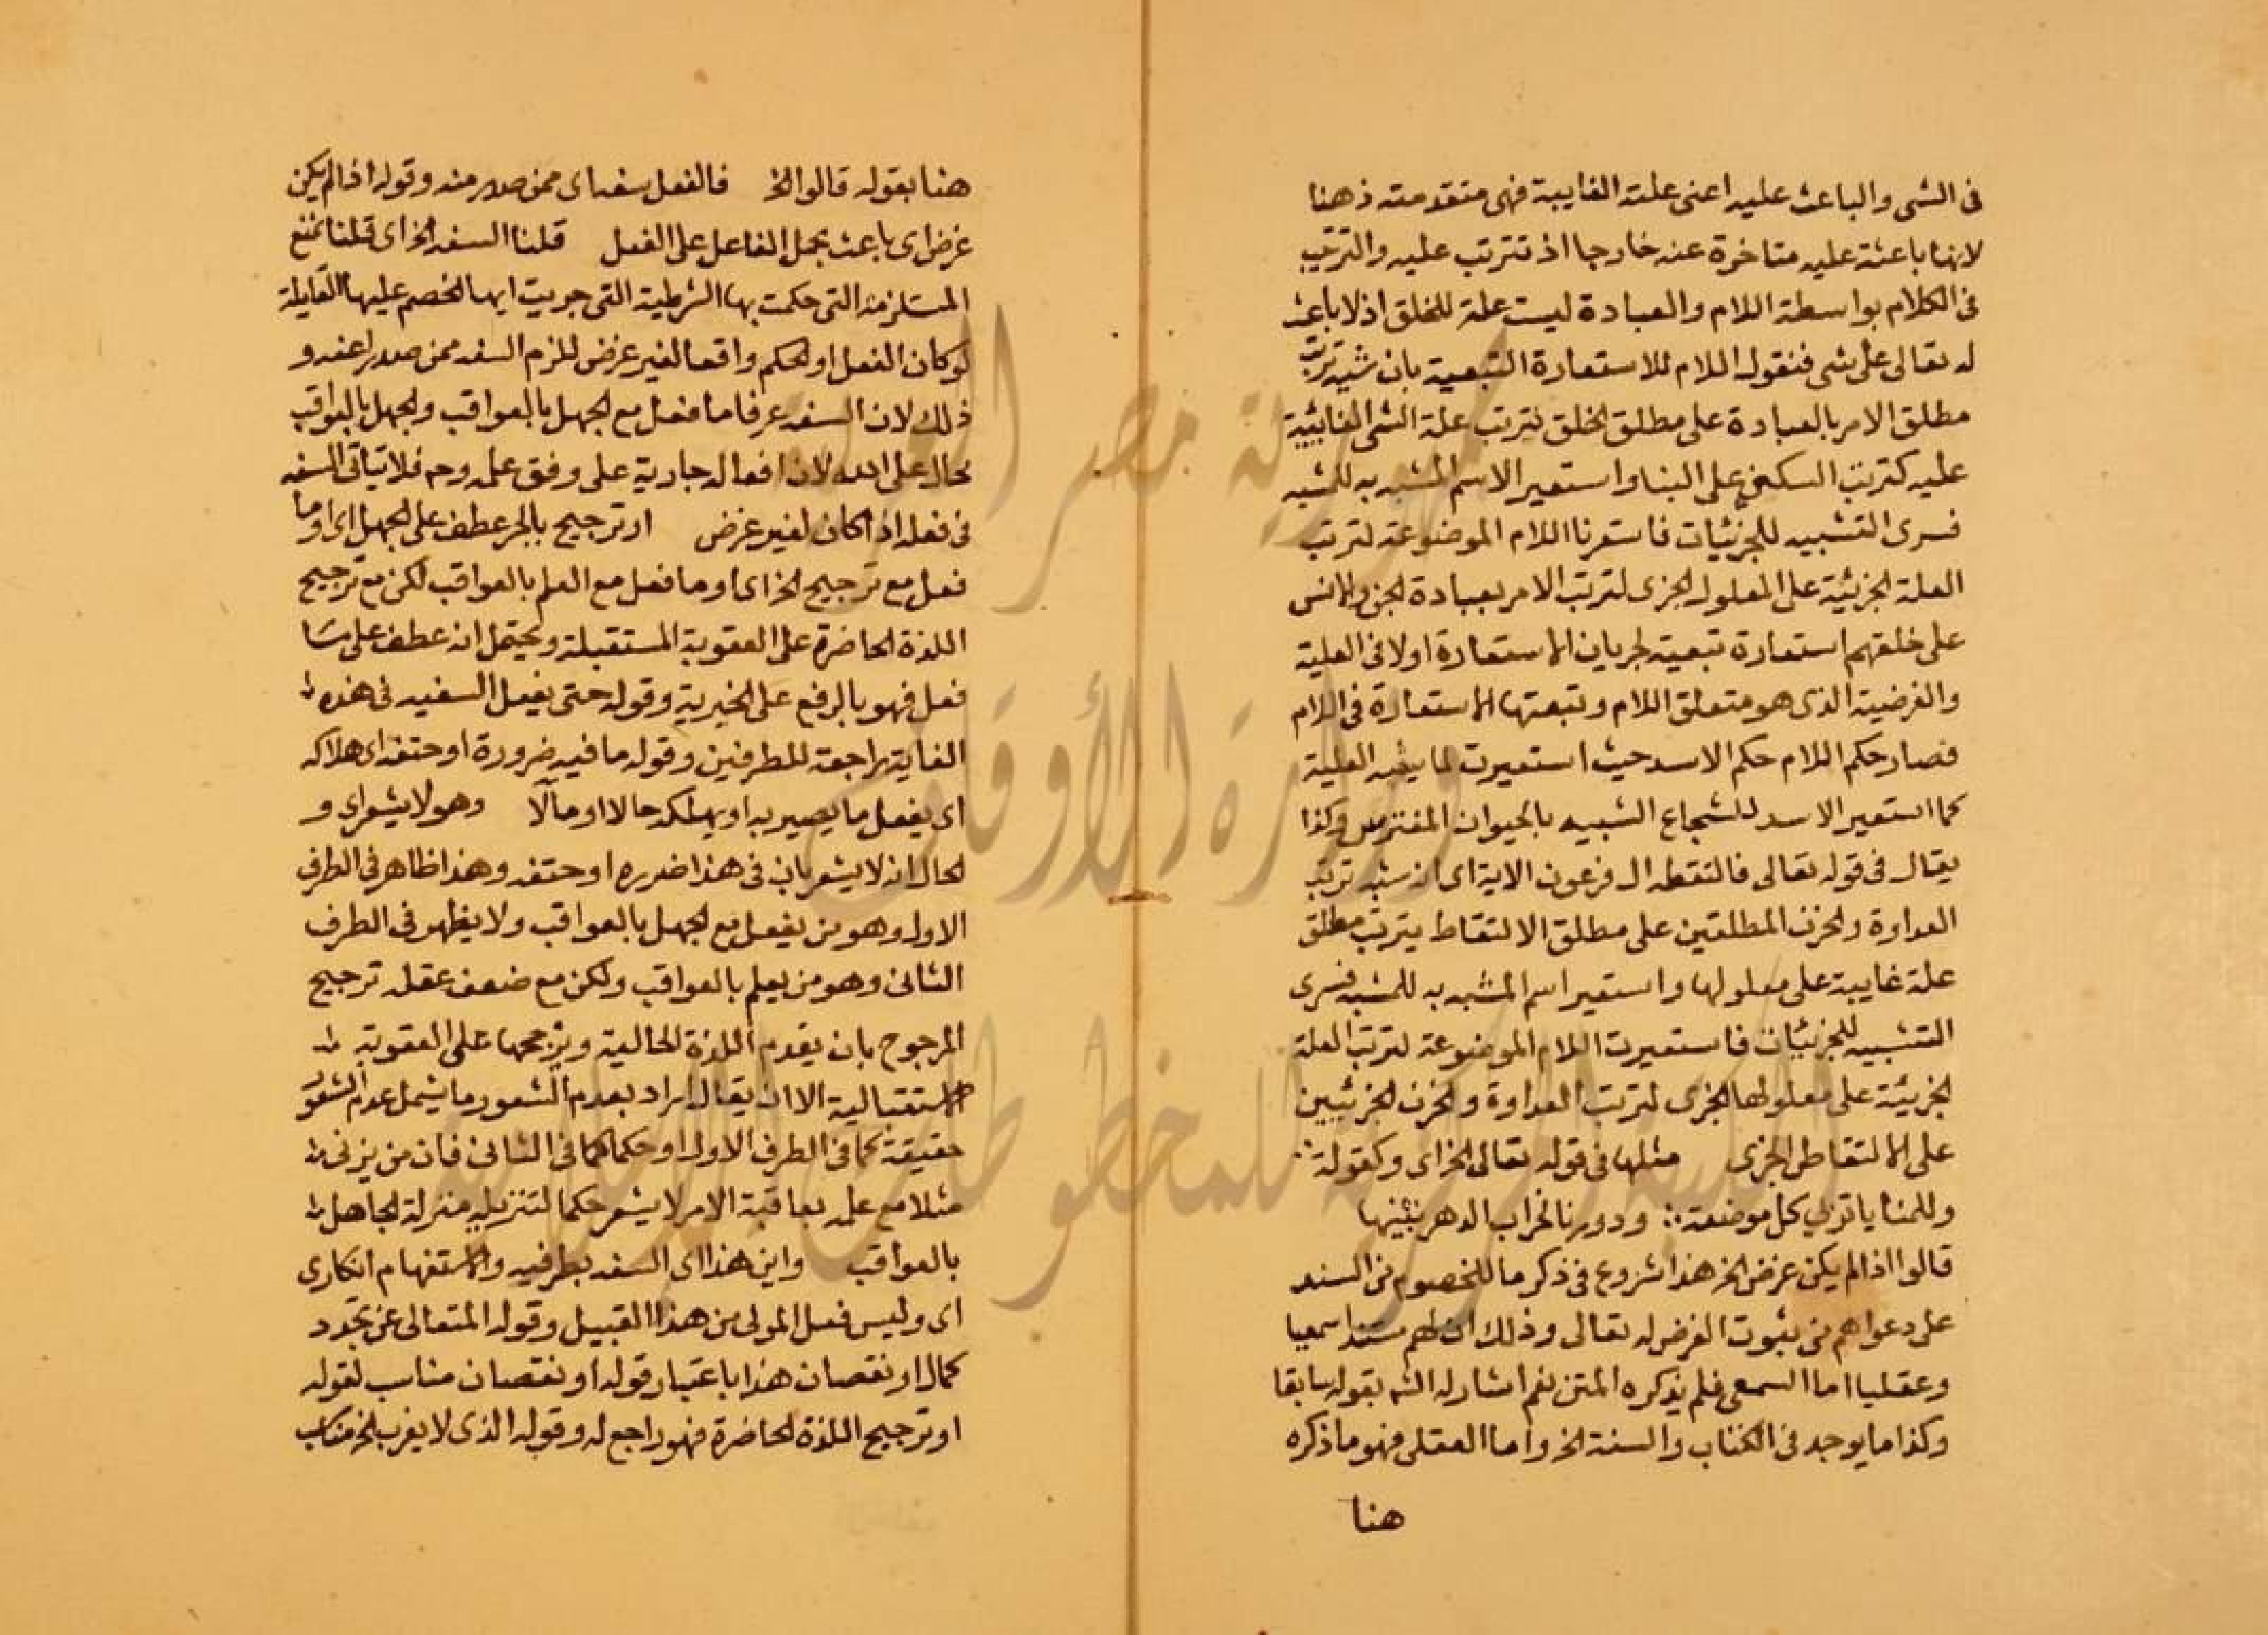 فى الشى والباعث عليه اعنى علته الغايبة فهى متقدمته ذهنا
لانها باعثة عليه متاخرة عنه خارجا اذ تترتب عليه والترتب
فى الكلام بواسطة اللام والعبادة ليست علة للخلق اذ لا باعث
له تعالى على شى فنقول اللام للاستعارة التبعية بان شبه ترتب
مطلق الامر بالعبادة على مطلق الخلق بترتب علة الشى الغائية
عليه كترتب السكنى على البنا واستعير الاسم المشبه به للمشبه
فسرى التشبيه للجزئيات فاستعرنا اللام الموضوعة لترتب
العلة الجزئية على المعلول الجزى لترتب الامر بعبادة الجن والانس
على خلقهم استعارة تبعية لجريان الاستعارة اولا فى العلية
والغرضية الذى هو متعلق اللام وتبعتها الاستعارة فى اللام
فصار حكم اللام حكم الاسد حيث استعيرت لما يشبه العلية
كما استعير الاسد للشجاع الشبيه بالحيوان المفترس وكذا
يقال فى قوله تعالى فالتقطه ال فرعون الاية اى انه شبه ترتب
العداوة والحزن المطلقين على مطلق الالتقاط بترتب مطلق
علة غايبة على معلولها واستعير اسم المشبه به للمشبه فسرى
التشبيه للجزئيات فاستعيرت اللام الموضوعة لترتب العلة
الجزئية على معلولها الجزى لترتب العداوة والحزن الجزئيين
على الالتقاط الجزى مثلها فى قوله تعالى الخ اى وكقوله
وللمنايا تربي كل موضعة ودورنا لخراب الدهر نبنيها
قالوا اذا لم يكن غرض الخ هذا شروع فى ذكر ما للخصوم من السند
على دعواهم من ثبوت الغرض له تعالى وذلك ان لهم مستندا سمعيا
وعقليا اما السمعى فلم يذكره المتن نعم اشار له الشه بقوله سابقا
وكذا ما يوجد فى الكتاب والسنة الخ واما العقلى فهو ما ذكره
هنا
هنا بقوله قالوا الخ فالفعل سفه اى ممن صدر منه وقوله اذا لم يكن
غرض اى باعث يحمل الفاعل على الفعل قلنا السفه الخ اى قلنا نمنع
المستلزمة التى حكمت بها الشرطية التى جريت ايها الخصم عليها القايلة
لو كان الفعل او الحكم واقعا لغير غرض للزم السفه ممن صدرا عنه و
ذلك لان السفه عرفا ما فعل مع الجهل بالعواقب والجهل بالعواقب
محال على الله لان افعاله جارية على وفق علمه وح فلا يتاتى السفه
فى فعله اذا كان لغير غرض او ترجيح بالجر عطف على الجهل اى او ما
فعل مع ترجيح الخ اى او ما فعل مع العلم بالعواقب لكن مع ترجيح
اللذة الحاضرة على العقوبة المستقبلة ويحتمل انه عطف على ما
فعل فهو بالرفع على الخبرية وقوله حتى يفعل السفيه فى هذه
الغاية راجعة للطرفين وقوله ما فيه ضرورة او حتفه اى هلاكه
اى يفعل ما يصير به او يهلكه حالا او مآلا وهو لا يشعر اى و
الحال انه لا يشعر بان فى هذا ضرره او حتفه وهذا ظاهر فى الطرف
الاول وهو من يفعل مع الجهل بالعواقب ولا يظهر فى الطرف
الثانى وهو من يعلم بالعواقب ولكن مع ضعف عقله ترجيح
المرجوح بان يقدم اللذة الحالية ويرجحها على العقوبة
الاستقبالية الا ان يقال اراد بعدم الشعور ما يشمل عدم الشعور
حقيقة كما فى الطرف الاول او حكما كما فى الثانى فان من يزنى
مثلا مع علمه بعاقبة الامر لا يشعر حكما لتنزيله منزلة الجاهل
بالعواقب واين هذا اى السفه بطرفيه والاستفهام انكارى
اى وليس فعل المولى من هذا القبيل وقوله المتعالى عن تجدد
كمال او نقصان هذا باعتبار قوله او نقصان مناسب لقوله
او ترجيح اللذة الحاضرة فهو راجع له وقوله الذى لا يعزب الخ مناسب